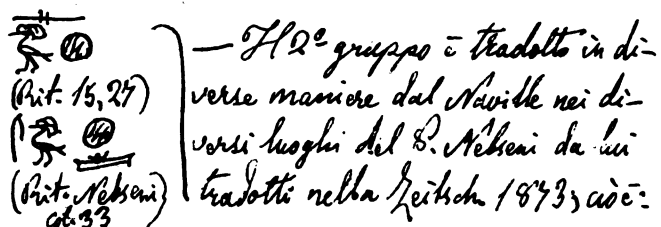 (Rit. 15, 27)
(Rit. Nebseni)
col. 33
— Il 2º gruppo è tradotto in di-
verse maniere dal Naville nei di-
versi luoghi del P. Nebseni da lui
tradotti nella Zeitsch. 1873; cioè: